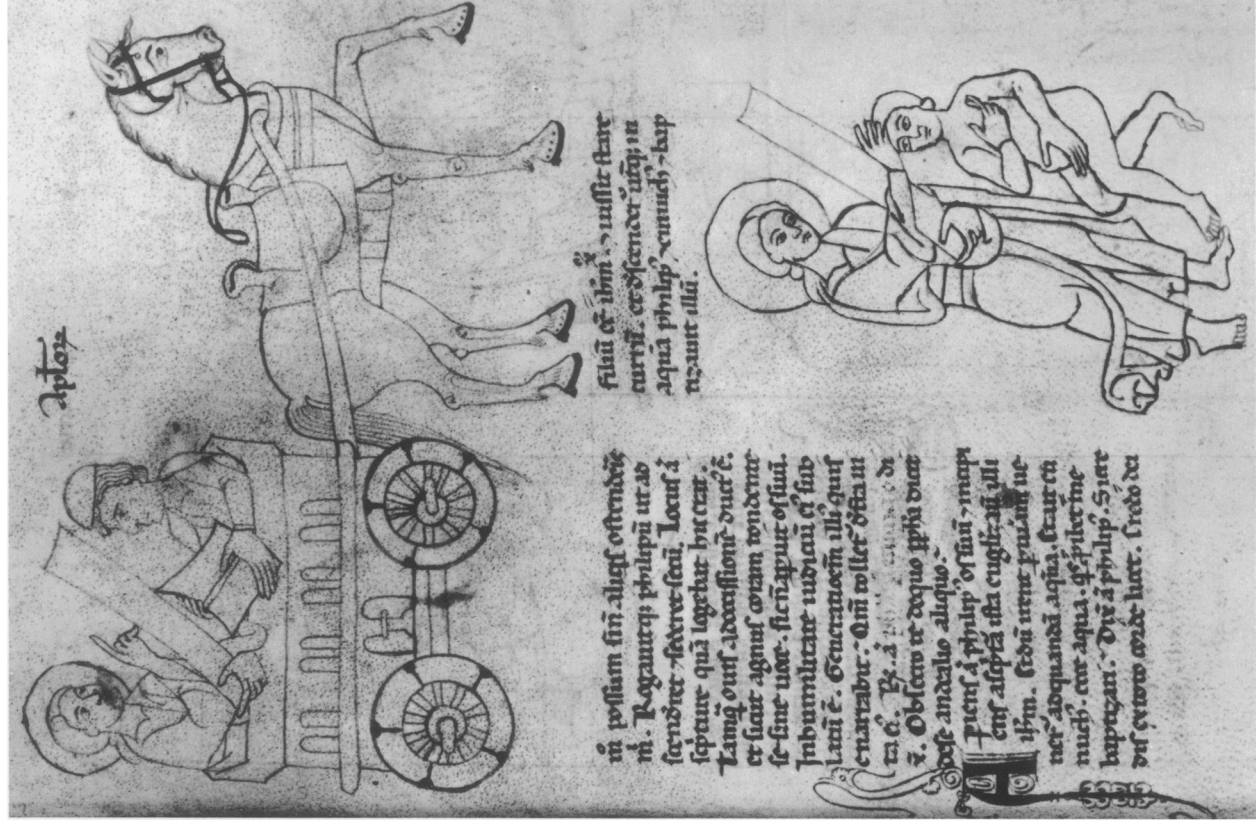 aptoꝝ
m̄ possum sin̄ aliqͥs ostenderit
m̄. Rogauitq; philipū ut as
scenderet ⁊ sederet secū. Locus ā
scpture quā legebat hic erat.
Tanq̄ ouis ad occisionē ductꝰ ē.
et sicut agnus coram tondente
se sine uoce. sic n̄ apuit os suū.
In humilitate iudiciū eiꝰ sub
latū ē. Generationem illiꝰ quis
enarrabit. Qm̄ tollet᷑ de t̄ra ui
ta eiꝰ. di
x̄. Obsecro te de quo ꝓpha dicit
de se an de alio aliquo.
Apiens ā philipꝰ os suū ⁊ incipi
ens a sc̄pt̄a ista euglizauit illi
ih̄m. irent p uiam ue
ner̄ ad quandā aquā. ait eu
nuchꝰ. ecce aqua. qͥs ꝓhibet me
baptizari. Dix̄ ā philipꝰ. Si cre
dis ex toto corde licet. Credo dei
filiū eē ih̄m xp̄m. ⁊ iussit stare
currū. et descender̄ utq; in
aquā philipꝰ ⁊ eunuchꝰ ⁊ bap
tizauit illū.